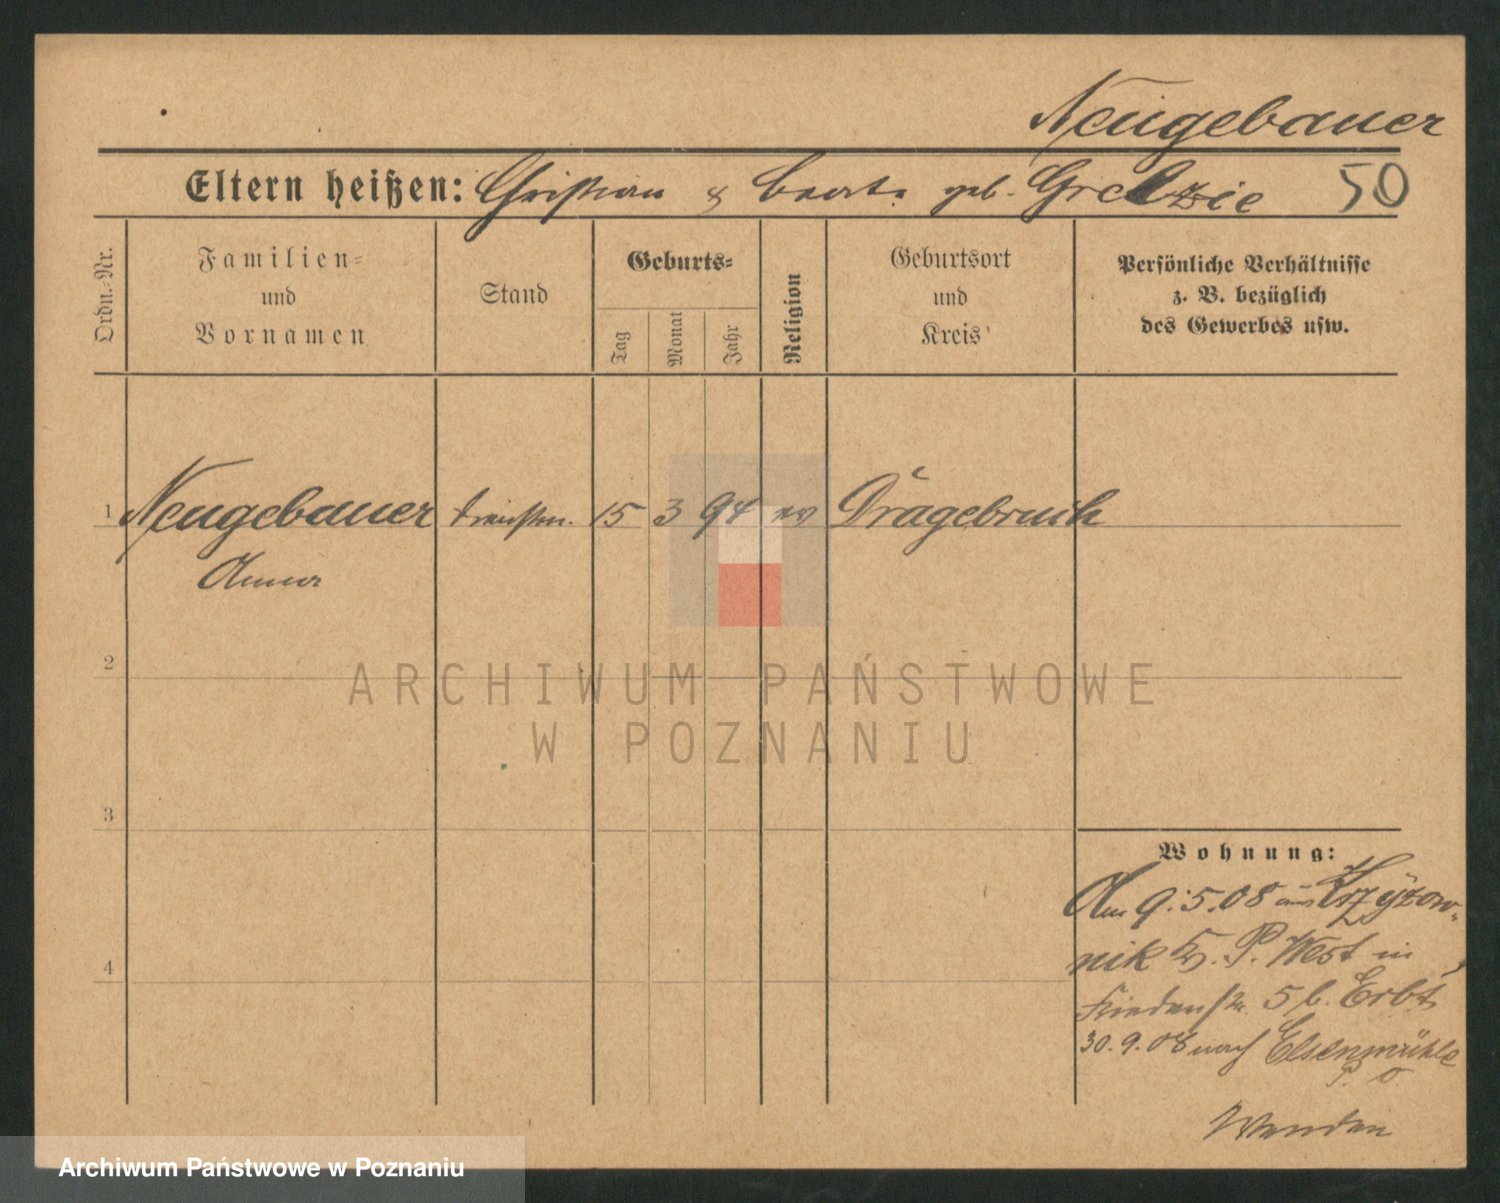 Neugebauer
Eltern heißen: Christian & geb. 50
Ordn.-Nr.
Familien-
und
Vornamen
Stand
Geburts-
Tag
Monat
Jahr
Religion
Geburtsort
und
Kreis
Persönliche Verhältnisse
z. B. bezüglich
des Gewerbes usw.
1 Neugebauer 15 3 94 ev Dragebruch
Anna
2
ARCHIWUM PAŃSTWOWE
W POZNANIU
3
Wohnung:
Am 9.5.08 aus Krzyżow-
nik Kr. P. West in
Friedenstr. 5 b. Erbt
4
30.9.08 nach Elsenmühle
P. O
Wenden
Archiwum Państwowe w Poznaniu